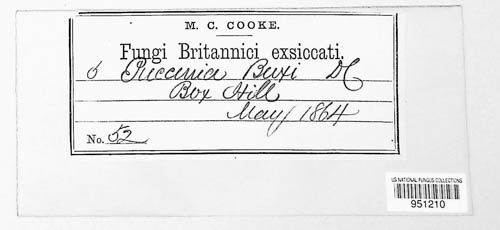 M. C. COOKE.
Fungi Britannici exsiccati.
Puccinia Buxi DC
Box Hill
May 1864
No. 52
US NATIONAL FUNGUS COLLECTIONS
951210